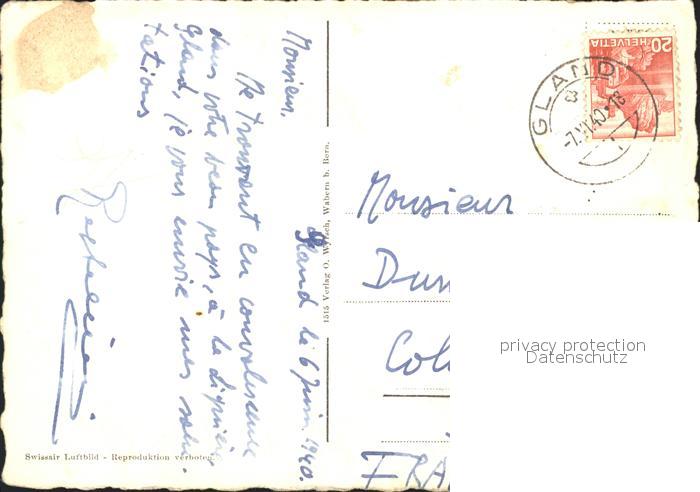 Gland le 6 Juin 1940.
Monsieur,
Me trouvant en convalescente
dans votre beau pays, à la lignière,
Gland, je vous envoie mes salu-
tations
1515 Verlag O. Wyrsch, Wabern b. Bern.
Swissair Luftbild - Reproduktion verboten.
HELVETIA 20
GLAND
-7.VI.40-18
Monsieur
Du
Col
FRA
privacy protection
Datenschutz